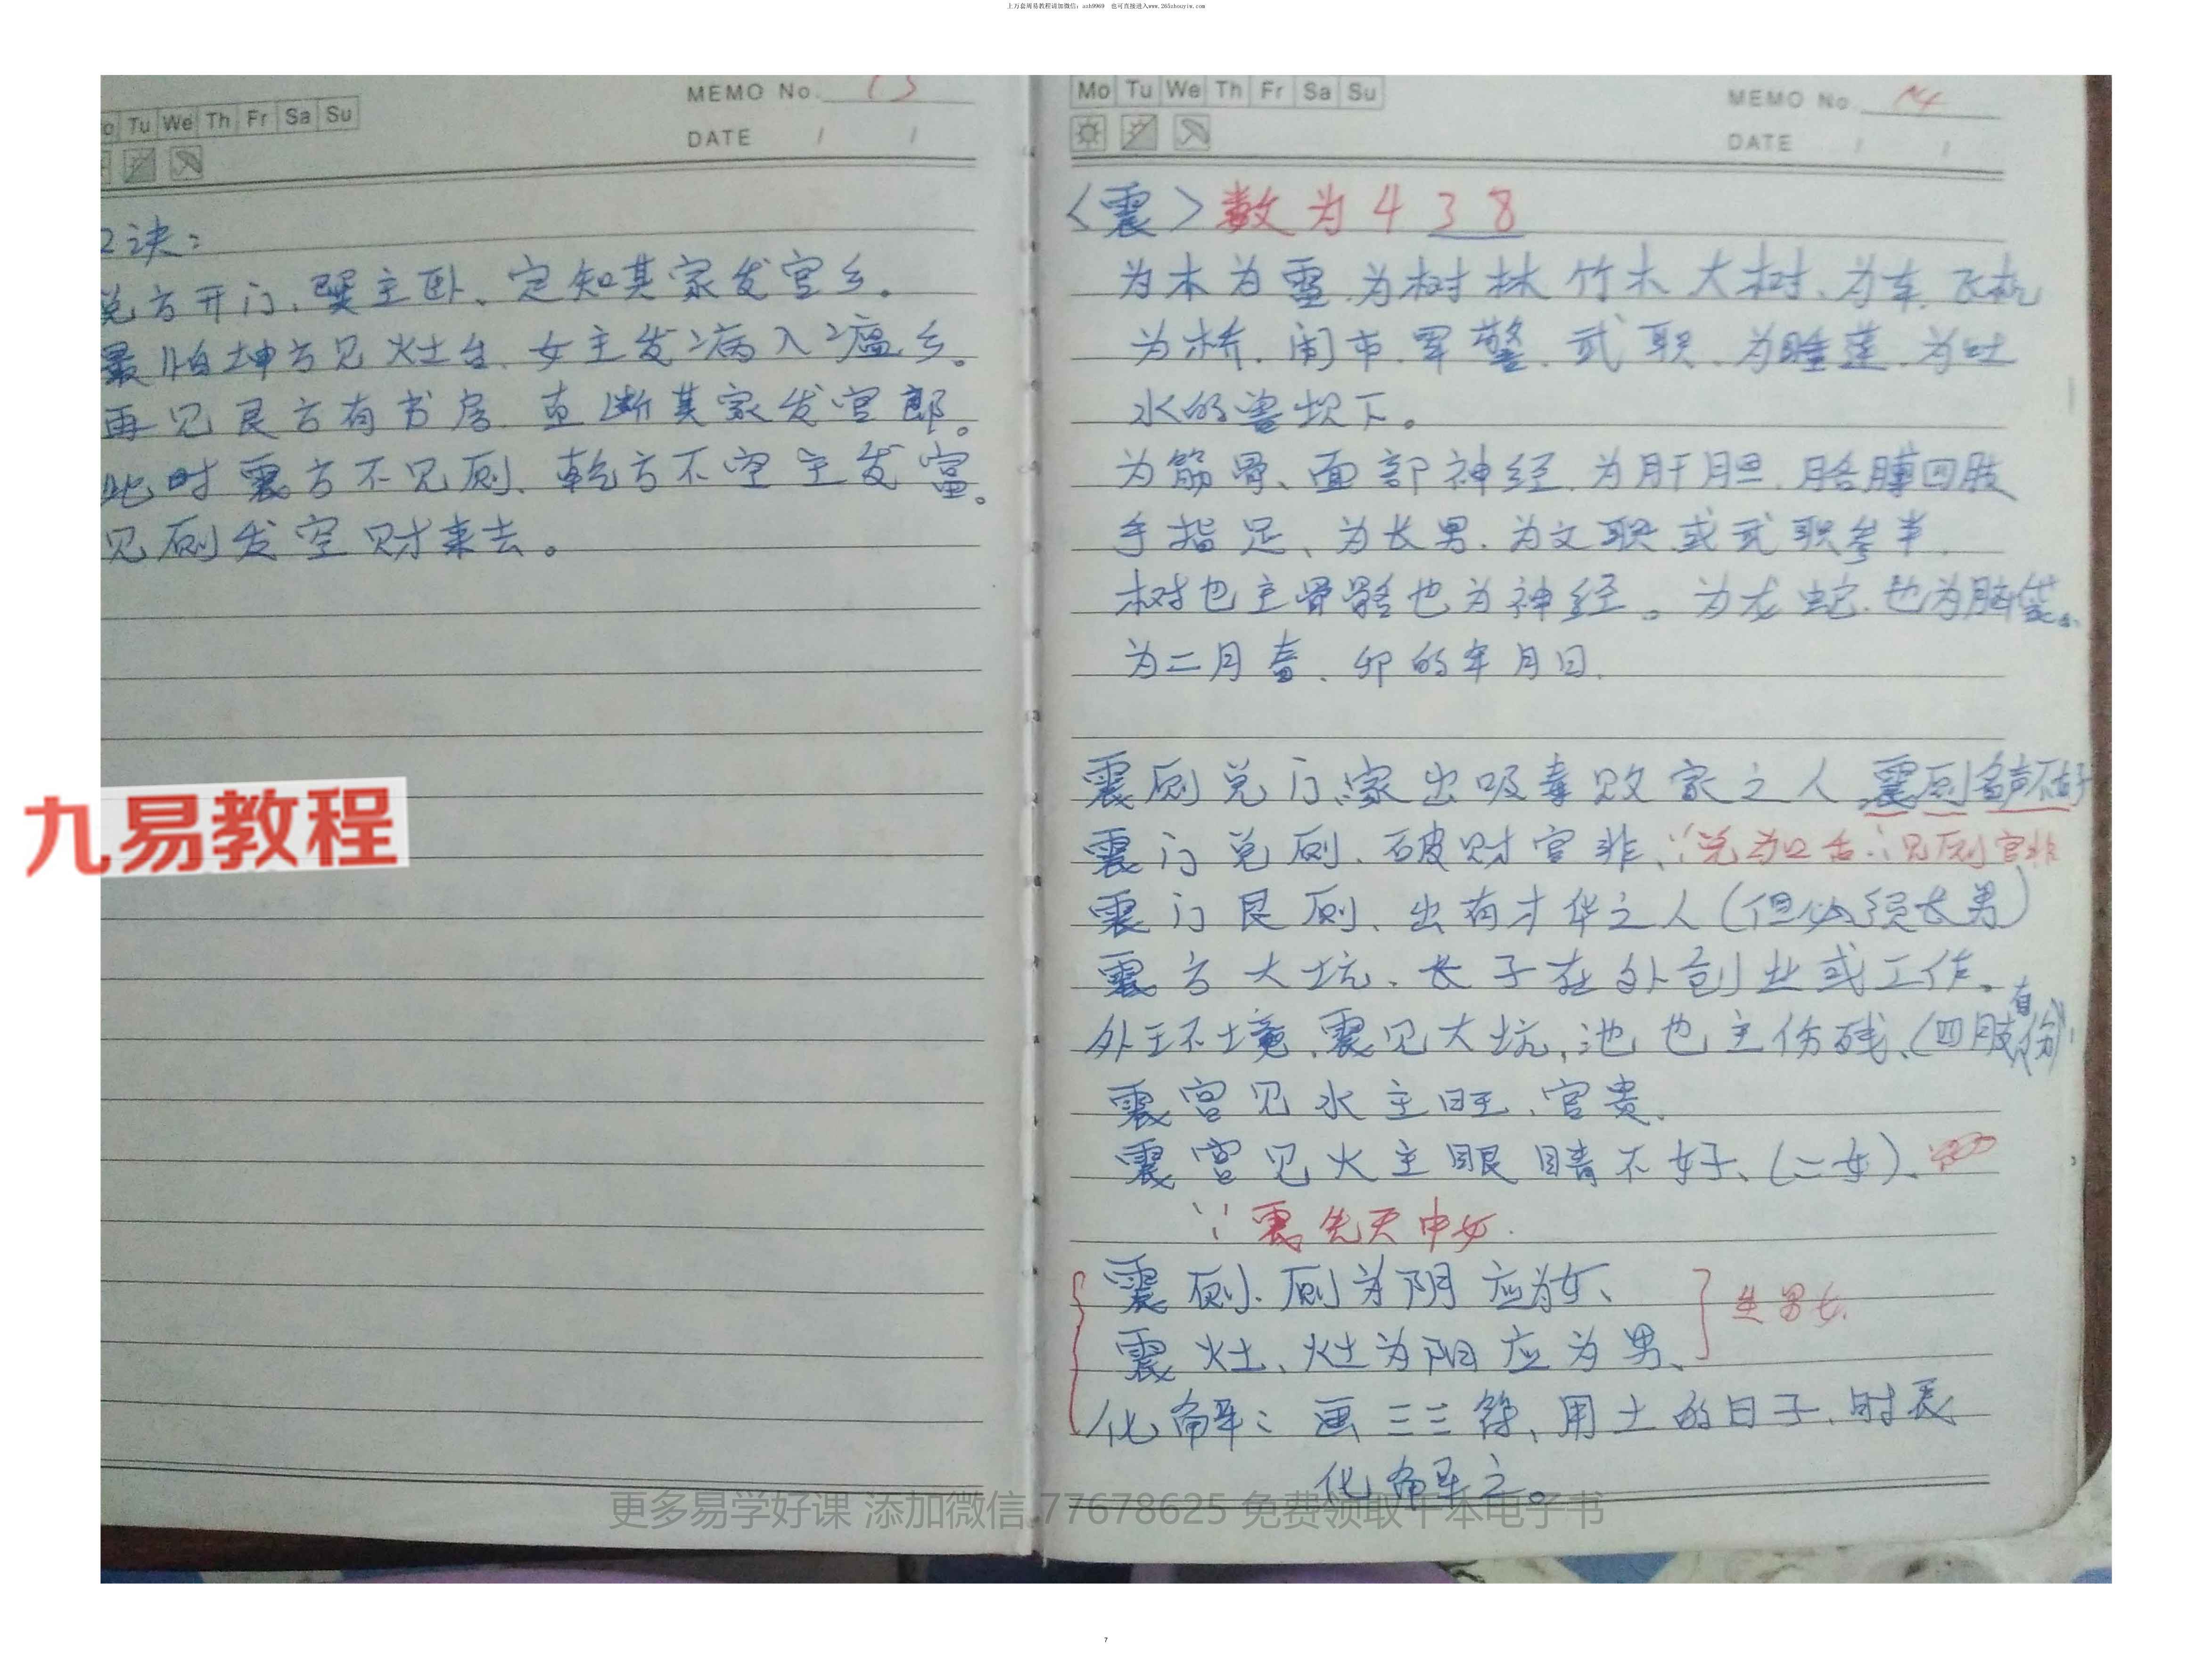 上万套周易教程请加微信：ash9969 也可直接进入www.265zhouyiw.com
Tu We Th Fr Sa Su
MEMO No. 13
DATE / /
口诀：
兑方开门、巽主卧、定知其家发官乡。
最怕坤方见灶台、女主发病入瘟乡。
再见艮方有书房、直断其家发官郎。
此时震方不见厕、乾方不空主发富。
见厕发空财来去。
Mo Tu We Th Fr Sa Su
MEMO No 14
DATE / /
〈震〉数为4 3 8
为木为雷、为树林竹木大树、为车、飞机
为桥、闹市、军警、武职、为睡莲、为吐
水的兽坝下。
为筋骨、面部神经、为肝胆、胳膊四肢
手指足、为长男、为文职或武职参半、
树也主骨骼也为神经。为龙蛇、也为脑袋。
为二月春、卯的年月日.
震厕兑门、家出吸毒败家之人、震厕名声不好
震门兑厕、破财官非、∵兑为口舌∴见厕官非
震门艮厕、出有才华之人（但必须长男）
震方大坑、长子在外创业或工作。
外环境、震见大坑、池也主伤残、（四肢有伤）
震宫见水主旺、官贵.
震宫见火主眼睛不好、（二女）、
∵震先天中女.
震厕、厕为阴应为女、
震灶、灶为阳应为男、
生男女.
化解：画三三符、用土的日子、时辰
化解之。
九易教程
更多易学好课 添加微信 77678625 免费领取千本电子书
7